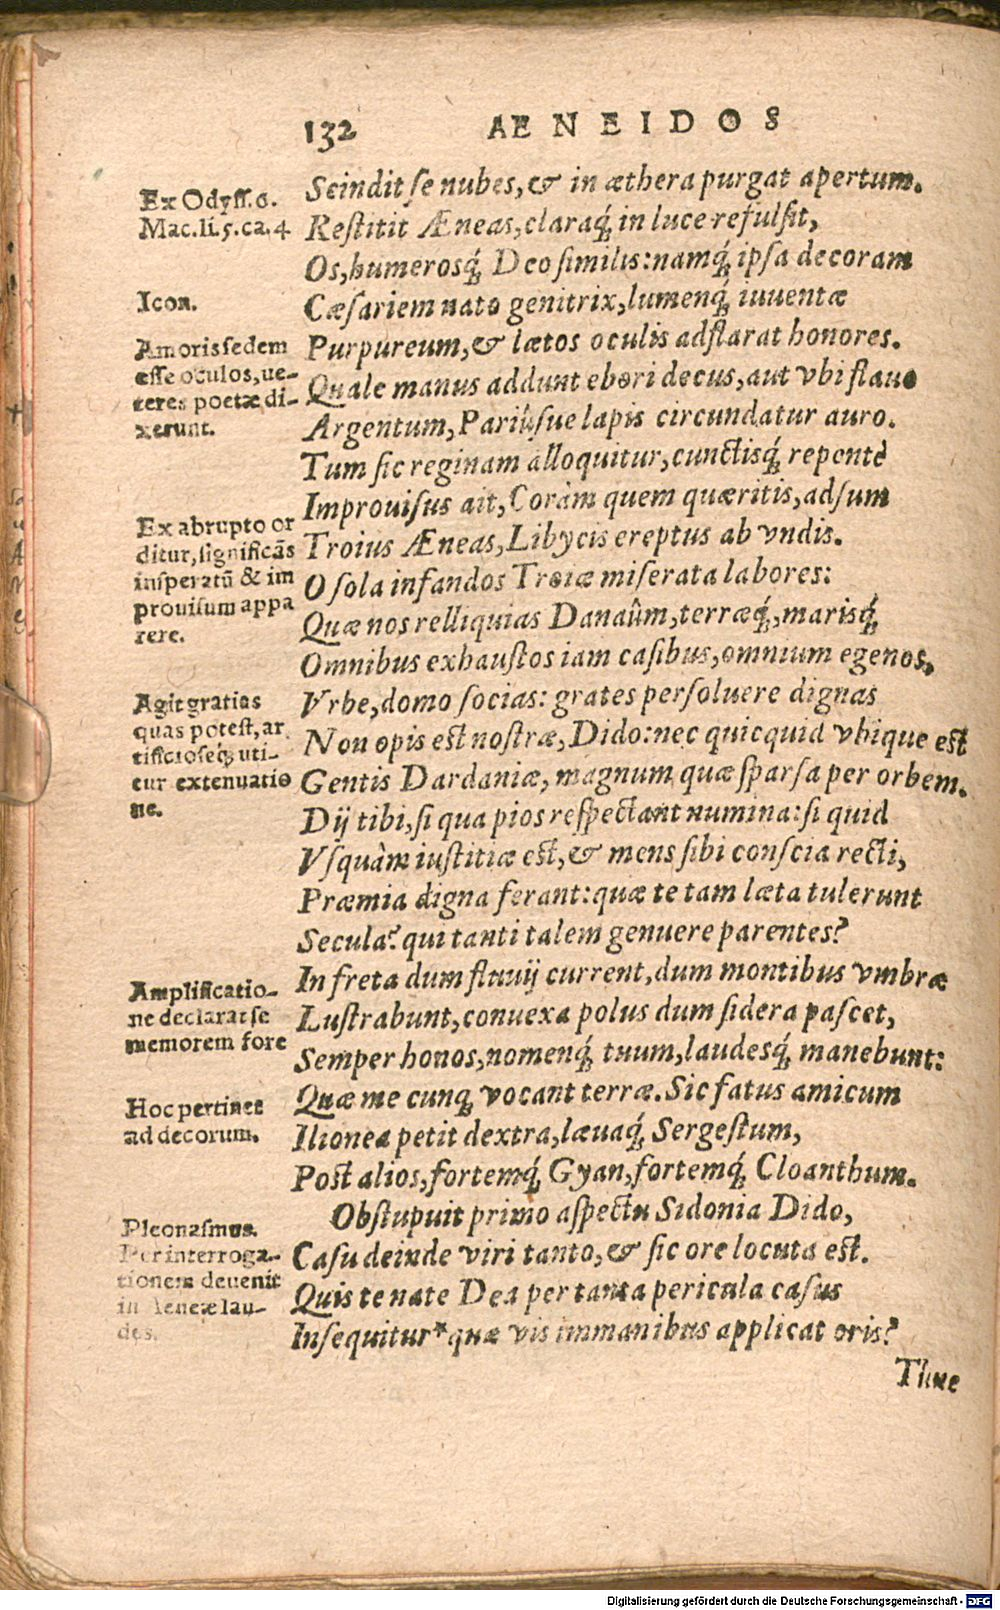 132 AENEIDOS
Ex Odyss. 6.
Mac. li. 5. ca. 4
Icon.
Amoris sedem
esse oculos, ue-
teres poetæ di-
xerunt.
Ex abrupto or
ditur, significãs
insperatũ & im
prouisum appa
rere.
Agit gratias
quas potest, ar
tificioseq́; uti-
tur extenuatio
ne.
Amplificatio-
ne declarat se
memorem fore
Hoc pertinet
ad decorum.
Pleonasmus.
Per interroga-
tionem deuenit
in Aeneæ lau-
des.
Scindit se nubes, & in æthera purgat apertum.
Restitit Æneas, claraq́; in luce refulsit,
Os, humerosq́; Deo similis: namq́; ipsa decoram
Cæsariem nato genitrix, lumenq́; iuuentæ
Purpureum, & lætos oculis adflarat honores.
Quale manus addunt ebori decus, aut vbi flauo
Argentum, Pariúsue lapis circundatur auro.
Tum sic reginam alloquitur, cunctisq́; repentè
Improuisus ait, Coràm quem quæritis, adsum
Troius Æneas, Libycis ereptus ab vndis.
O sola infandos Troiæ miserata labores:
Quæ nos relliquias Danaûm, terræq́;, marisq́;
Omnibus exhaustos iam casibus, omnium egenos,
Vrbe, domo socias: grates persoluere dignas
Non opis est nostræ, Dido: nec quicquid vbique est
Gentis Dardaniæ, magnum quæ sparsa per orbem.
Dij tibi, si qua pios respectant numina: si quid
Vsquàm iustitiæ est, & mens sibi conscia recti,
Præmia digna ferant: quæ te tam læta tulerunt
Secula? qui tanti talem genuere parentes?
In freta dum fluuij current, dum montibus vmbræ
Lustrabunt, conuexa polus dum sidera pascet,
Semper honos, nomenq́; tuum, laudesq́; manebunt:
Quæ me cunq; vocant terræ. Sic fatus amicum
Ilionea petit dextra, læuaq́; Sergestum,
Post alios, fortemq́; Gyan, fortemq́; Cloanthum.
Obstupuit primo aspectu Sidonia Dido,
Casu deinde viri tanto, & sic ore locuta est.
Quis te nate Dea per tanta pericula casus
Insequitur* quæ vis immanibus applicat oris?
Tune
Digitalisierung gefördert durch die Deutsche Forschungsgemeinschaft - DFG